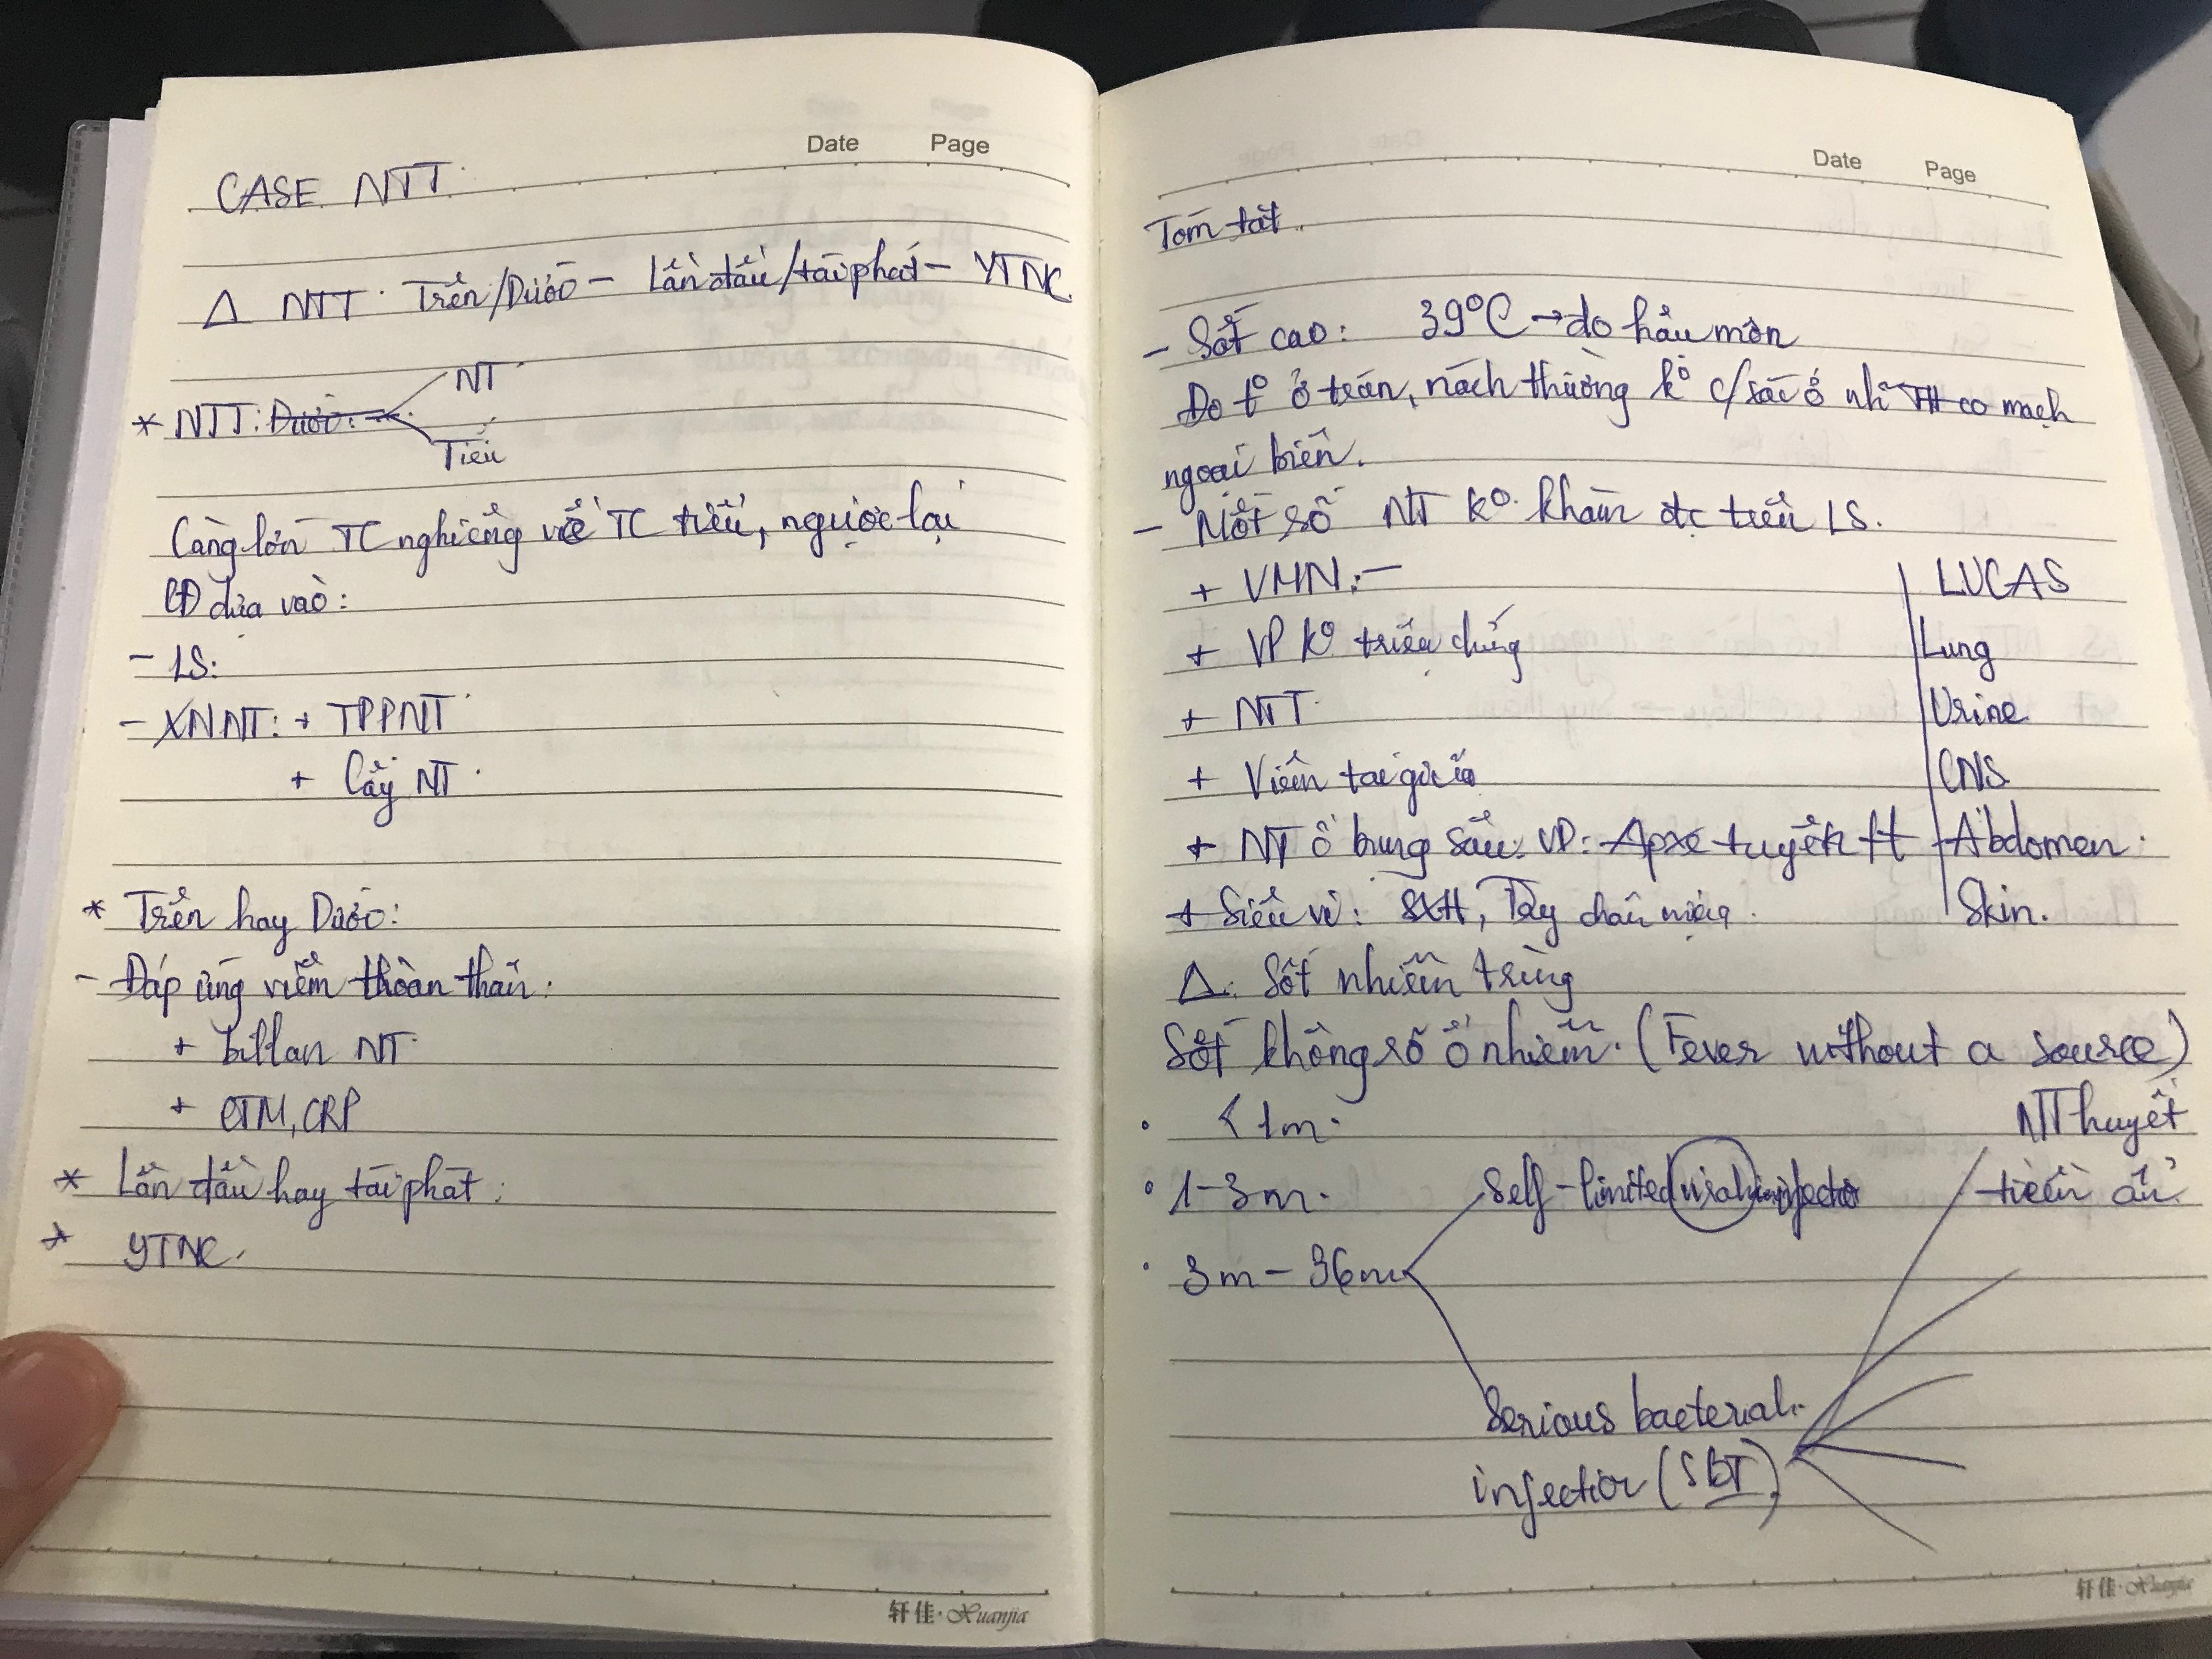 Date Page
CASE NTT
Δ NTT Trên/Dưới - Lần đầu/tái phát - YTNC
NT
* NTT: Dưới:
Tiểu
Càng lớn TC nghiêng về TC tiểu, ngược lại
CĐ dựa vào:
- LS:
- XNNT: + TPPNT
+ Cấy NT
* Trên hay Dưới:
- Đáp ứng viêm thoàn thân:
+ billan NT
+ CTM, CRP
* Lần đầu hay tái phát:
* YTNC.
轩佳·Xuanjia
Date Page
Tóm tắt.
- Sốt cao: 39°C → đo hậu môn
Đo t° ở trán, nách thường k° c/xác ở nhi TH co mạch
ngoại biên.
- Một số NT k° khám đc trên LS.
+ VMN: - LUCAS
+ VP k° triệu chứng Lung
+ NTT Urine
+ Viêm tai giữa CNS
+ NT ổ bụng sâu. VD: Apxe tuyến tt Abdomen
+ Siêu vi: SXH, Tay chân miệng. Skin.
Δ: Sốt nhiễm trùng
Sốt không rõ ổ nhiễm. (Fever without a source)
• < 1m. NT huyết
• 1-3m. Self-limited viral infection tiềm ẩn
• 3m - 36m
Serious bacterial
infection (SBI)
轩佳·Xuanjia